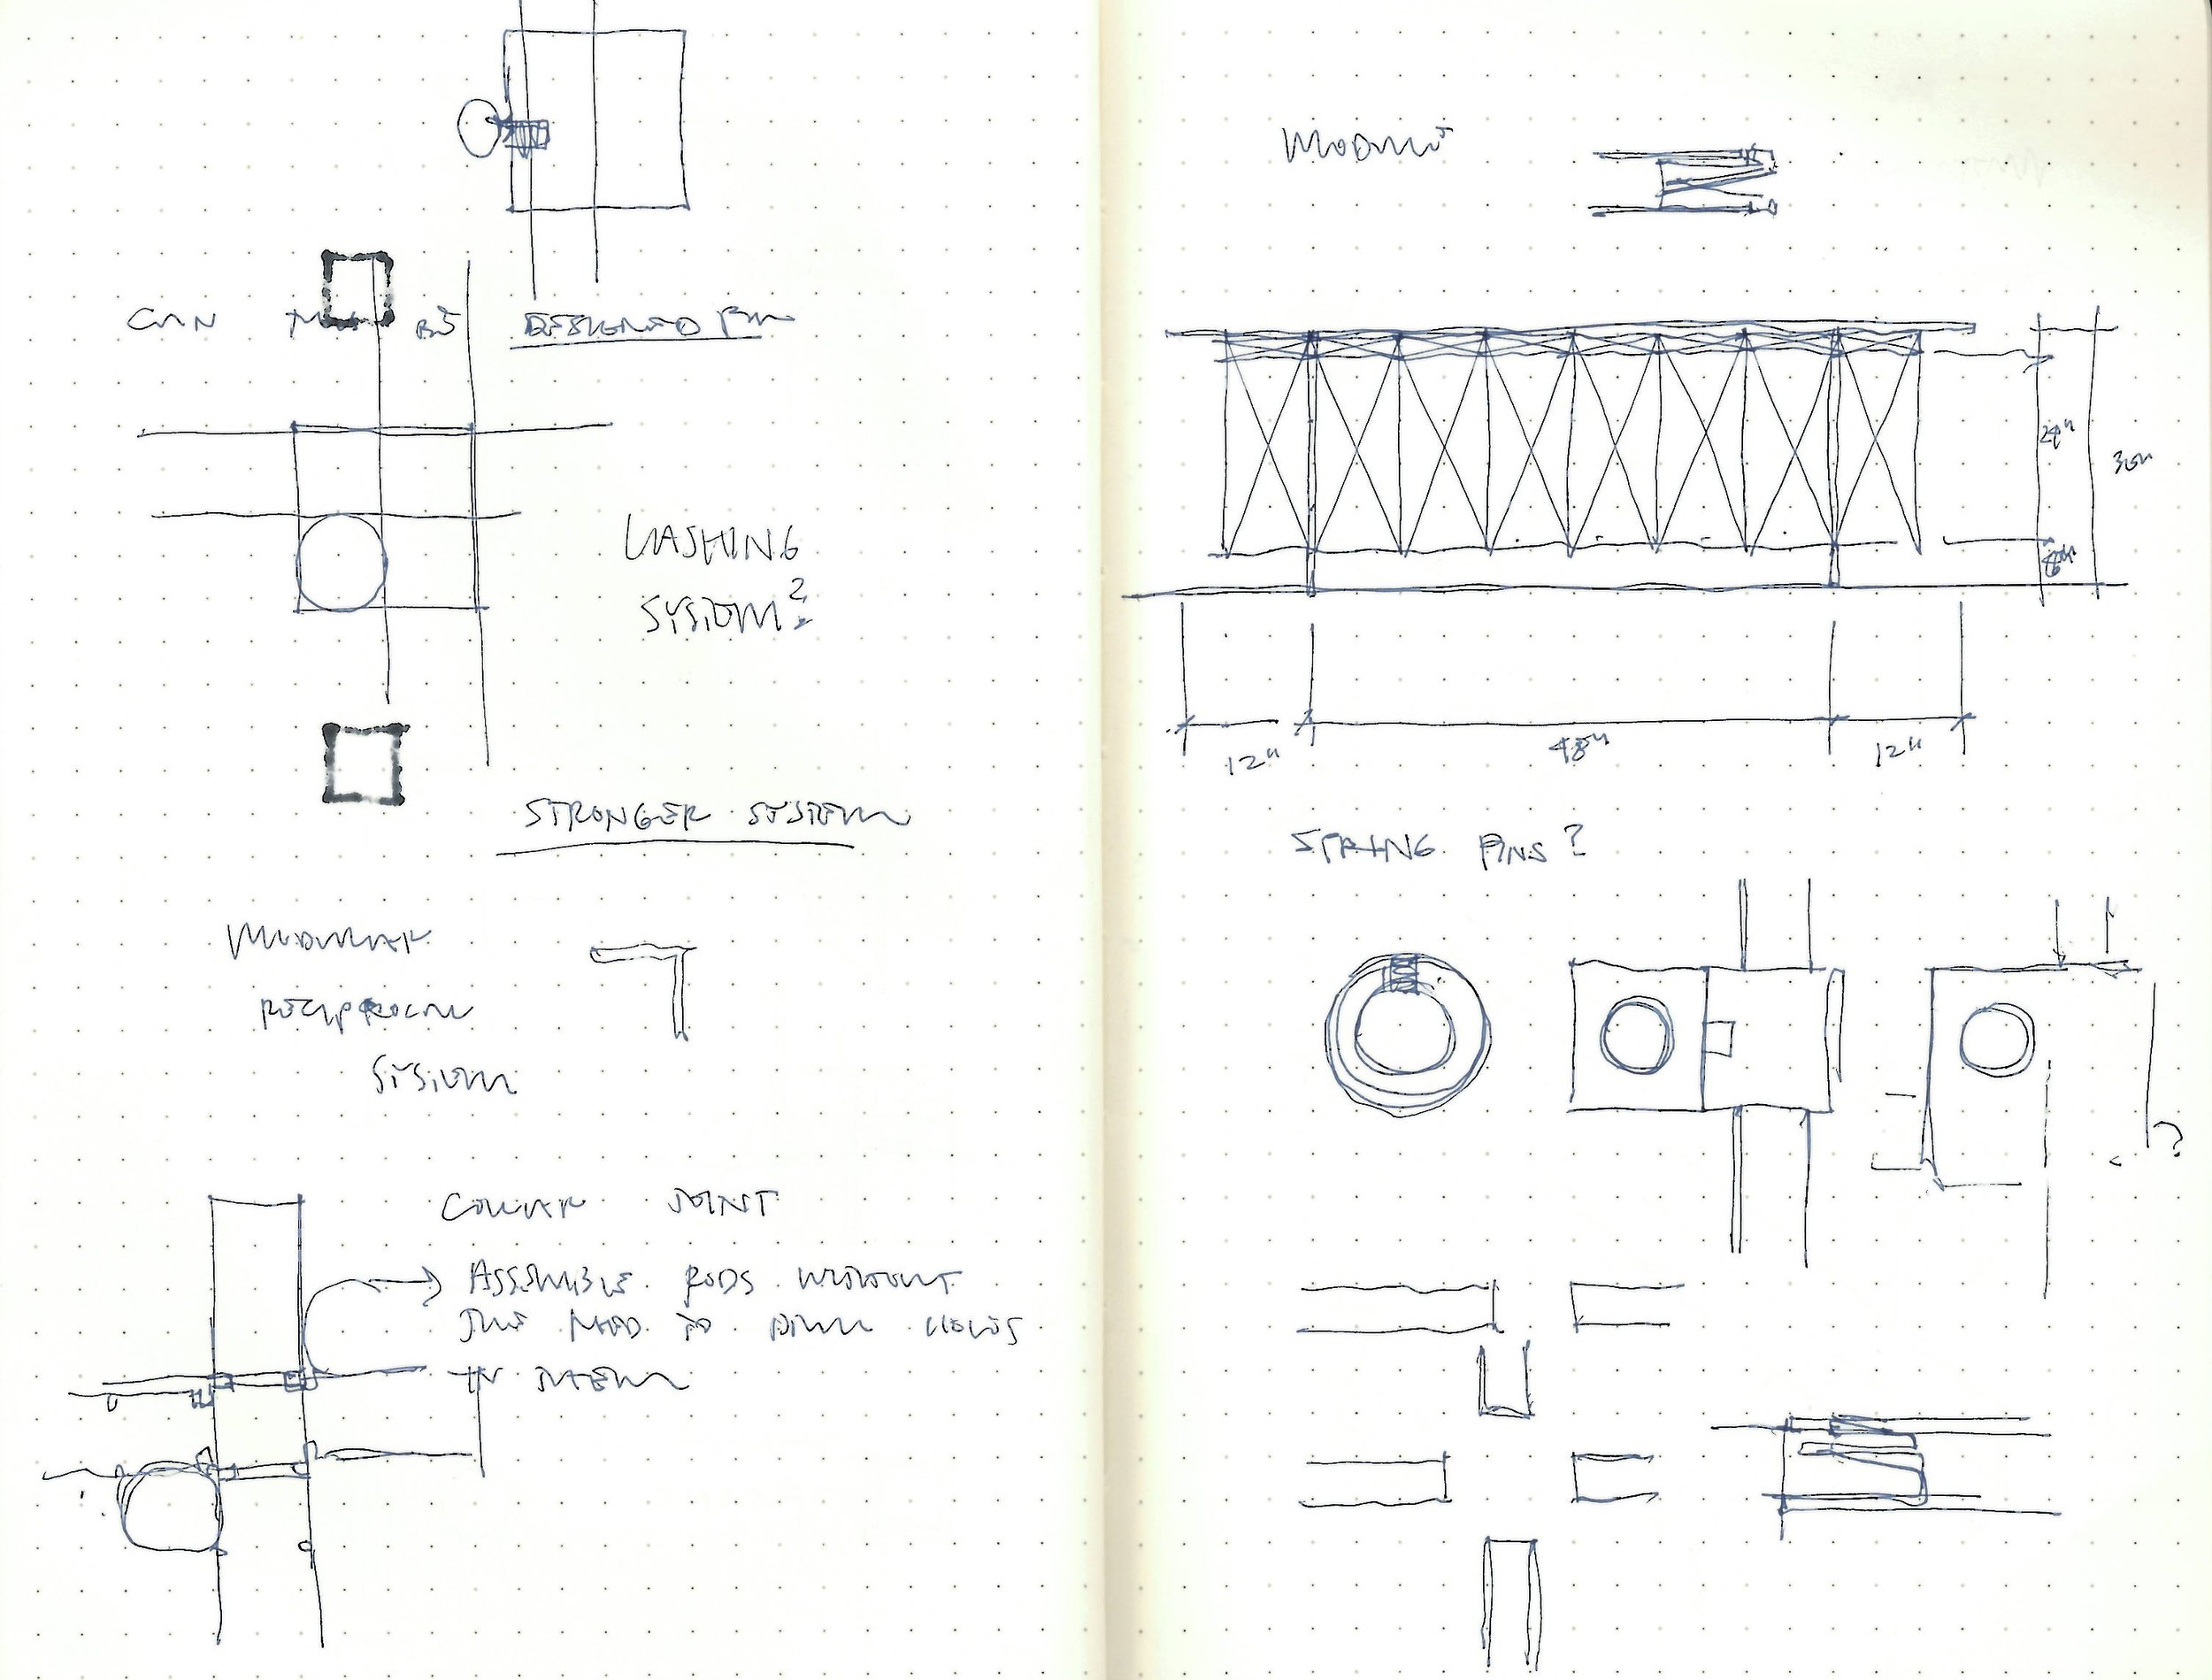 CAN THIS BE DESIGNED FOR
LASHING
SYSTEM?
STRONGER SYSTEM
MODULAR
RECIPROCAL
SYSTEM
COLLAR JOINT
ASSEMBLE RODS WITHOUT
THE NEED TO DRILL HOLES
IN THEM
24"
30"
6"
12" 48" 12"
SPRING PINS?
?